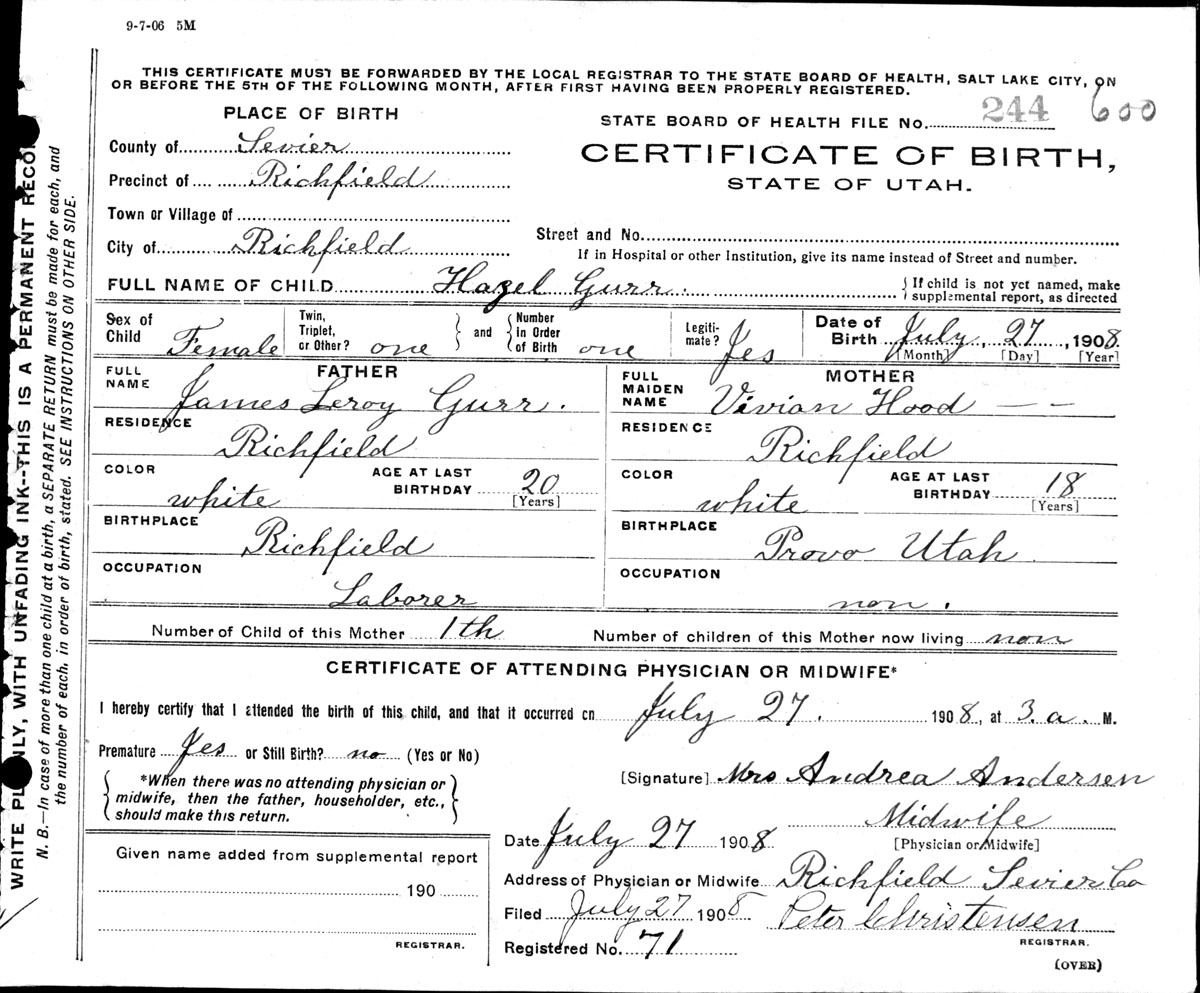 9-7-06 5M
THIS CERTIFICATE MUST BE FORWARDED BY THE LOCAL REGISTRAR TO THE STATE BOARD OF HEALTH, SALT LAKE CITY, ON
OR BEFORE THE 5TH OF THE FOLLOWING MONTH, AFTER FIRST HAVING BEEN PROPERLY REGISTERED.
PLACE OF BIRTH
STATE BOARD OF HEALTH FILE No. 244 600
County of Sevier
CERTIFICATE OF BIRTH,
Precinct of Richfield
STATE OF UTAH.
Town or Village of
Street and No.
City of Richfield
If in Hospital or other Institution, give its name instead of Street and number.
FULL NAME OF CHILD Hazel Gurr. { If child is not yet named, make
supplemental report, as directed
Sex of
Child Female
Twin,
Triplet,
or Other? one
} and {
Number
in Order
of Birth one
Legiti-
mate? Yes
Date of
Birth July, 27, 1908.
[Month] [Day] [Year]
FATHER
FULL
NAME James Leroy Gurr.
RESIDENCE
Richfield
COLOR
white
AGE AT LAST
BIRTHDAY 20
[Years]
BIRTHPLACE
Richfield
OCCUPATION
Laborer
MOTHER
FULL
MAIDEN
NAME Vivian Hood — —
RESIDENCE
Richfield
COLOR
white
AGE AT LAST
BIRTHDAY 18
[Years]
BIRTHPLACE
Provo Utah
OCCUPATION
non.
Number of Child of this Mother 1th Number of children of this Mother now living non
CERTIFICATE OF ATTENDING PHYSICIAN OR MIDWIFE*
I hereby certify that I attended the birth of this child, and that it occurred on July 27. 1908, at 3. a. M.
Premature Yes or Still Birth? no (Yes or No)
{ *When there was no attending physician or
midwife, then the father, householder, etc.,
should make this return. }
[Signature] Mrs Andrea Andersen
Midwife
[Physician or Midwife]
Date July 27 1908
Address of Physician or Midwife Richfield Sevier Co
Filed July 27 1908 Peter Christensen
REGISTRAR.
Registered No. 71
(OVER)
Given name added from supplemental report
190
REGISTRAR.
WRITE PL NLY, WITH UNFADING INK--THIS IS A PERMANENT RECO
N. B.—In case of more than one child at a birth, a SEPARATE RETURN must be made for each, and
the number of each, in order of birth, stated. SEE INSTRUCTIONS ON OTHER SIDE.